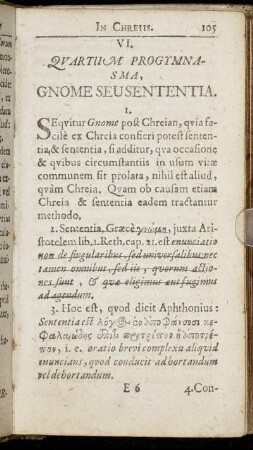 In Chreiis. 105
VI.
QVARTUM PROGYMNA-
SMA,
GNOME SEU SENTENTIA.
1.
SEqvitur Gnome post Chreian, qvia fa-
cilè ex Chreia confieri potest senten-
tia, & sententia, si additur, qva occasione
& qvibus circumstantiis in usum vitæ
communem sit prolata, nihil est aliud,
qvàm Chreia. Qvam ob causam etiam
Chreia & sententia eadem tractantur
methodo.
2. Sententia, Græcè γνώμη, juxta Ari-
stotelem lib. 1. Reth. cap. 21. est enunciatio
non de singularibus, sed universalibus: nec
tamen omnibus, sed iis, qvorum actio-
nes sunt, & qvæ eligimus aut fugimus
ad agendum.
3. Hoc est, qvod dicit Aphthonius:
Sententia est λόγος ἐν ἀποφάνσει κε-
φαλαιώδης ἐπί τι προτρέπων ἢ ἀποτρέ-
πων, i. e. oratio brevi complexu aliqvid
enuncians, qvod conducit ad hortandum
vel dehortandum.
E 6 4. Con-